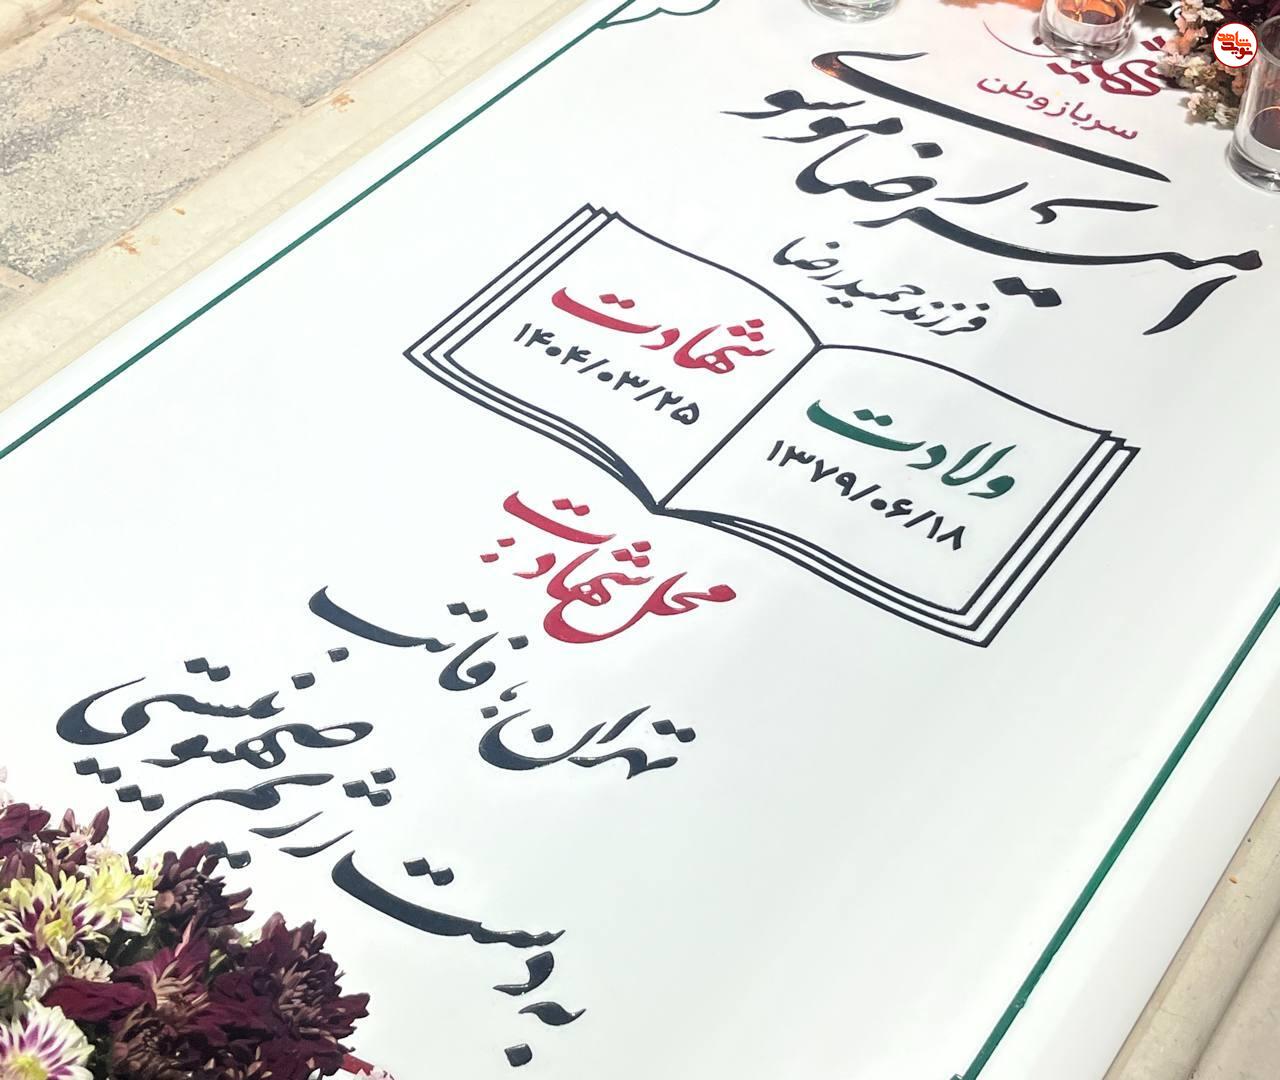 شهید
سرباز وطن
امیررضا موسوی
فرزند حمیدرضا
ولادت
۱۳۷۹/۰۶/۱۸
شهادت
۱۴۰۴/۰۳/۲۵
محل شهادت
تهران؛ فاتب
به دست رژیم صهیونیستی
نوید شاهد